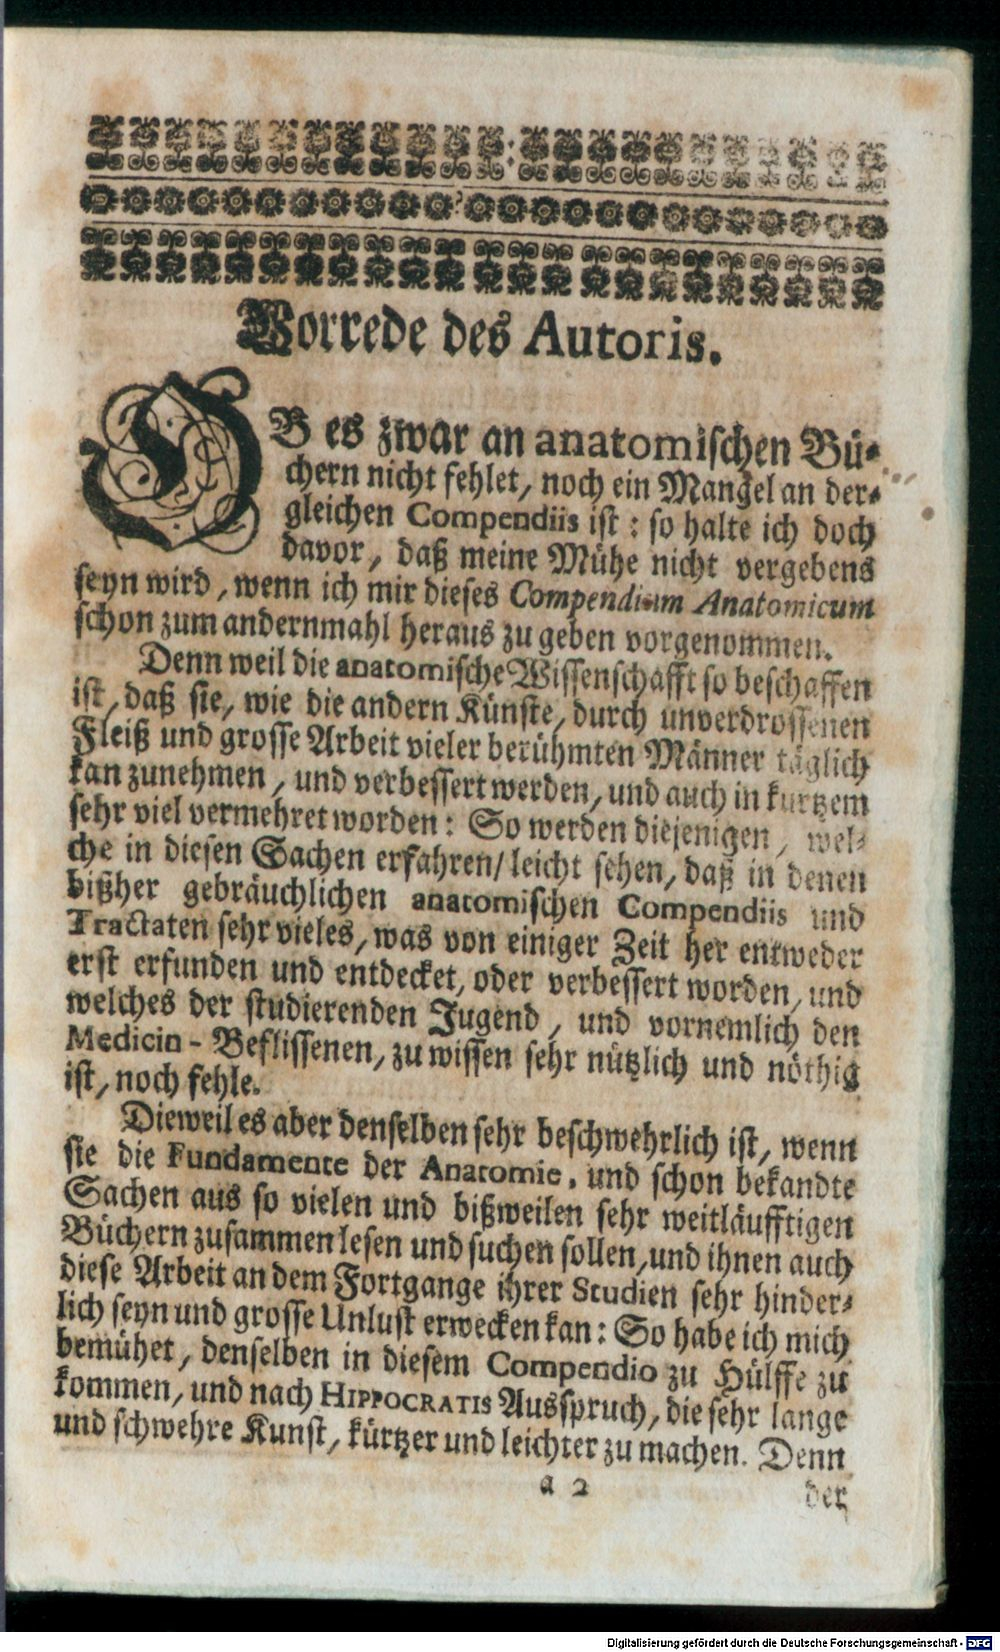 Vorrede des Autoris.
OB es zwar an anatomischen Bü-
chern nicht fehlet, noch ein Mangel an der-
gleichen Compendiis ist: so halte ich doch
davor, daß meine Mühe nicht vergebens
seyn wird, wenn ich mir dieses Compendium Anatomicum
schon zum andernmahl heraus zu geben vorgenommen.
Denn weil die anatomische Wissenschafft so beschaffen
ist, daß sie, wie die andern Künste, durch unverdrossenen
Fleiß und grosse Arbeit vieler berühmten Männer täglich
kan zunehmen, und verbessert werden, und auch in kurtzem
sehr viel vermehret worden: So werden diejenigen, wel-
che in diesen Sachen erfahren/ leicht sehen, daß in denen
bißher gebräuchlichen anatomischen Compendiis und
Tractaten sehr vieles, was von einiger Zeit her entweder
erst erfunden und entdecket, oder verbessert worden, und
welches der studierenden Jugend, und vornemlich den
Medicin-Beflissenen, zu wissen sehr nützlich und nöthig
ist, noch fehle.
Dieweil es aber denselben sehr beschwehrlich ist, wenn
sie die Fundamente der Anatomie, und schon bekandte
Sachen aus so vielen und bißweilen sehr weitläufftigen
Büchern zusammen lesen und suchen sollen, und ihnen auch
diese Arbeit an dem Fortgange ihrer Studien sehr hinder-
lich seyn und grosse Unlust erwecken kan: So habe ich mich
bemühet, denselben in diesem Compendio zu Hülffe zu
kommen, und nach HIPPOCRATIS Ausspruch, die sehr lange
und schwehre Kunst, kürtzer und leichter zu machen. Denn
a 2
der
Digitalisierung gefördert durch die Deutsche Forschungsgemeinschaft - DFG